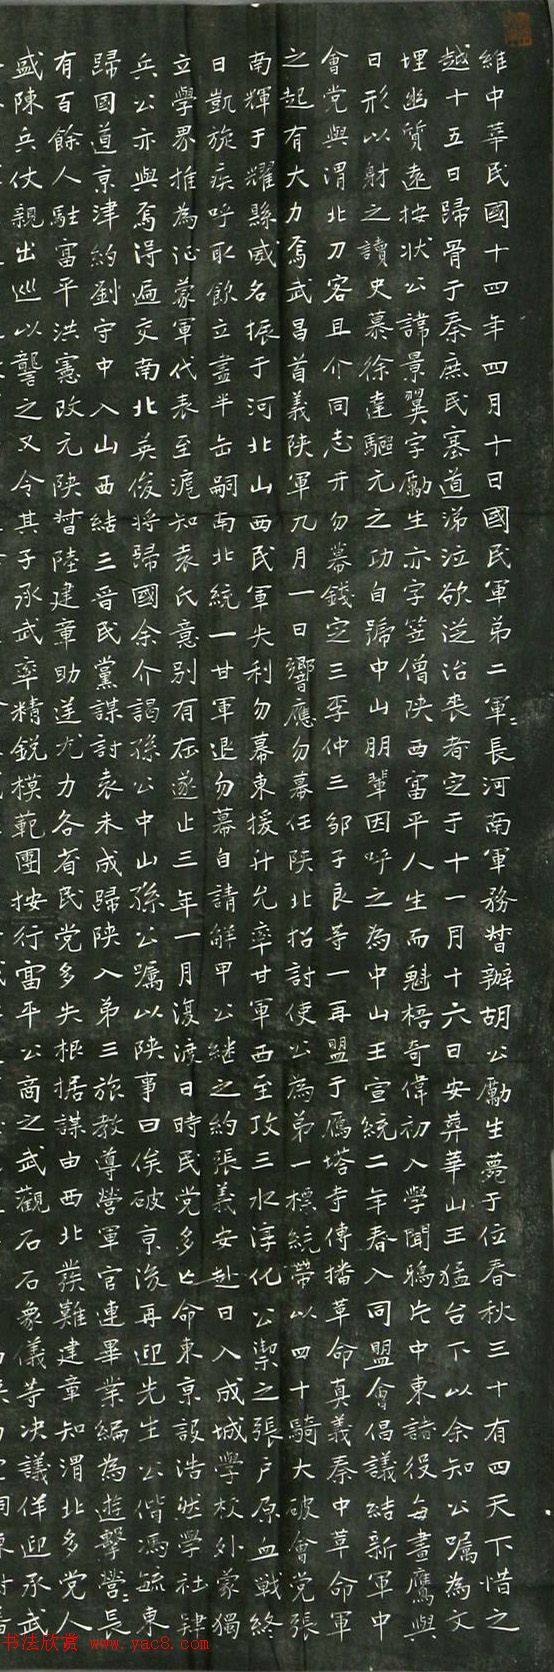 維中華民國十四年四月十日國民軍弟二軍=長河南軍務督辦胡公勵生薨于位春秋三十有四天下惜之
越十五日歸骨于秦庶民塞道涕泣欲從治喪者定于十一月十六日安葬華山王猛台下以余知公囑為文
埋幽質遠按狀公諱景翼字勵生亦字笠僧陝西富平人生而魁梧奇偉初入學聞鴉片中東諸役每畫鷹與
日形以射之讀史慕徐達驅元之功自號中山朋輩因呼之為中山王宣統二年春入同盟會倡議結新軍中
會党與渭北刀客且介同志井勿幕錢定三李仲三鄒子良等一再盟于雁塔寺傳播革命真義秦中革命軍
之起有大力焉武昌首義陝軍九月一日響應勿幕任陝北招討使公為弟一標統帶以四十騎大破會党張
南輝于耀縣威名振于河北山西民軍失利勿幕東援升允率甘軍西至攻三水淳化公禦之張戶原血戰終
日凱旋疾呼取飲立盡半缶嗣南北統一甘軍退勿幕自請解甲公繼之約張義安赴日入成城學校外蒙獨
立學界推為征蒙軍代表至滬知袁氏意別有在遂止三年一月復渡日時民党多亡命東京設浩然學社肄
兵公亦與焉得遍交南北英俊將歸國余介謁孫公中山孫公囑以陝事曰俟破京後再迎先生公偕馮毓東
歸國道京津約劉守中入山西結三晉民黨謀討袁未成歸陝入弟三旅教導營軍官連畢業編為遊擊營=長
有百餘人駐富平洪憲改元陝督陸建章助逆尤力各省民党多失根据謀由西北發難建章知渭北多党人
盛陳兵仗親出巡以讋之又令其子承武率精銳模範團按行富平公商之武觀石石象儀等決議佯迎承武
书法欣赏 www.yac8.com